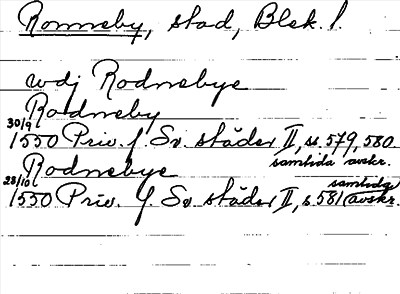 Ronneby, stad, Blek. l.
wdj Rodnebye
Rodneby
30/9 1550 Priv. f. Sv. städer II, s. 579, 580.
samtida avskr.
Rodnebye
28/10 1550 Priv. f. Sv. städer II, s. 581
samtida avskr.